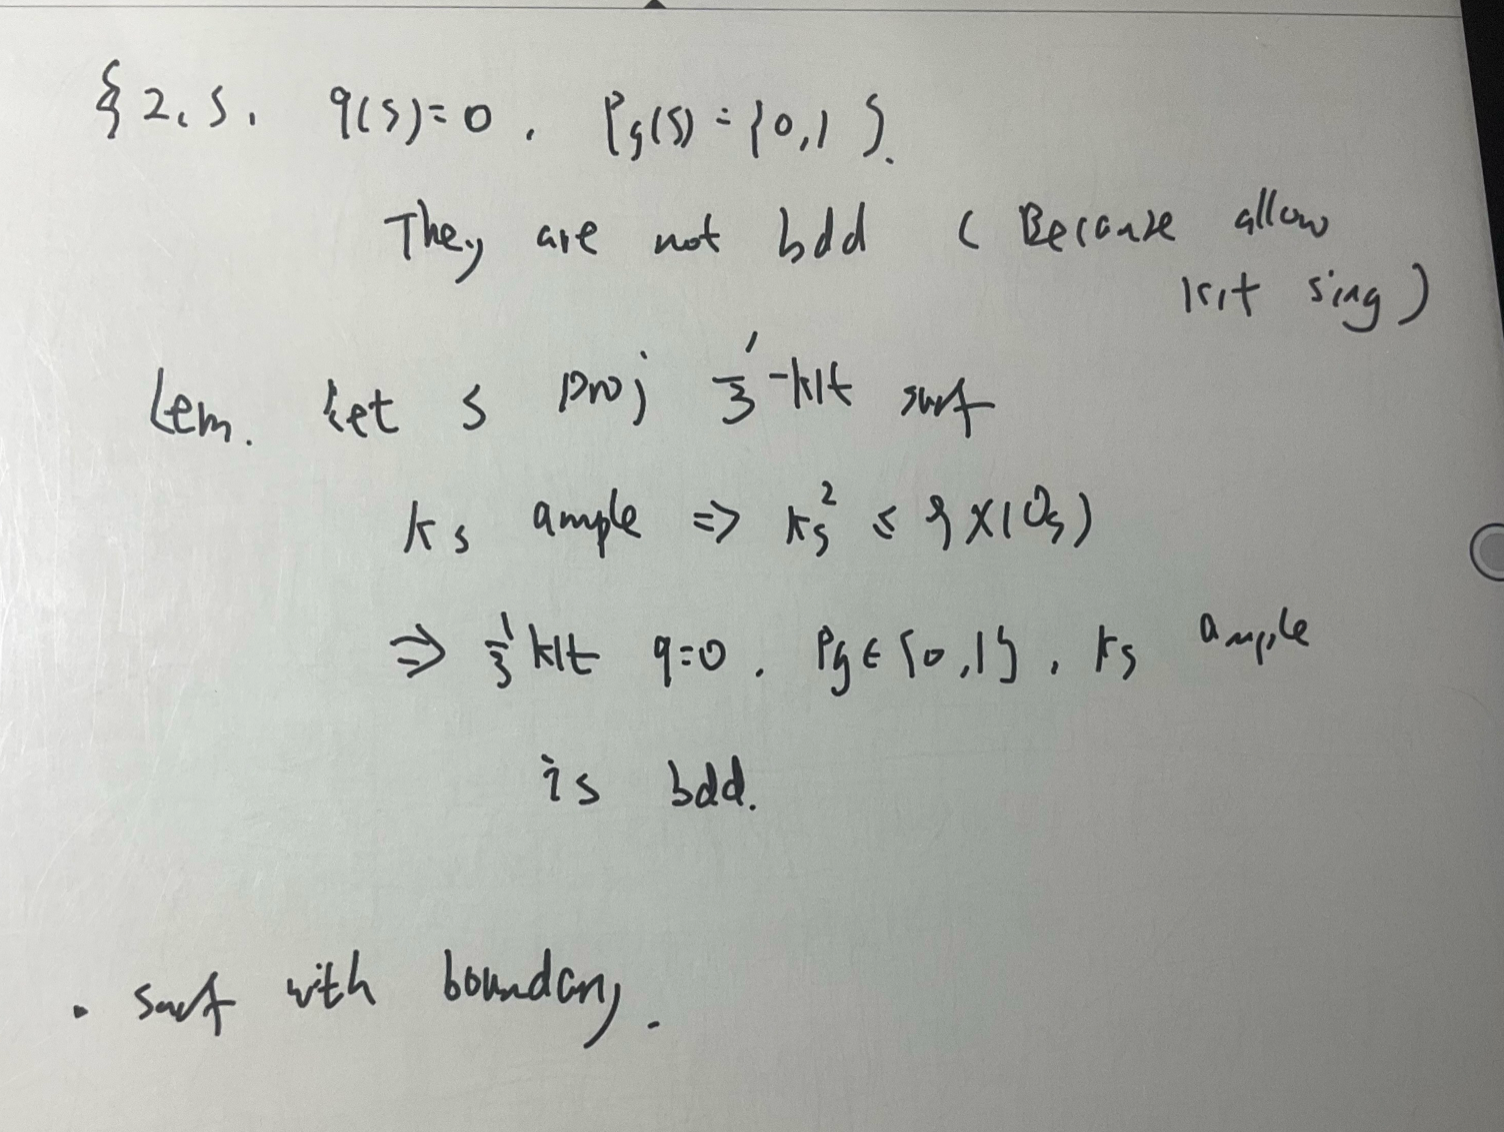 § 2.5. q(S)=0. Pg(S)={0,1}.
They are not bdd (Because allow
klt sing)
Lem. Let S proj 1/3-klt surf
Ks ample => Ks² ≤ 9χ(Os)
=> 1/3 klt q=0. Pg∈{0,1}, Ks ample
is bdd.
• surf with boundary.